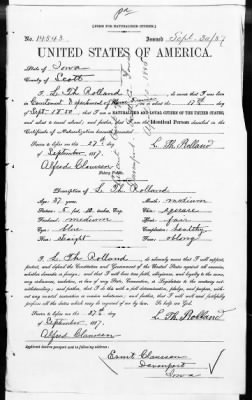 [FORM FOR NATURALIZED CITIZEN.]
No. 14343. Issued Sept. 30/87
UNITED STATES OF AMERICA.
State of Iowa
County of Scott
I, L. Th. Rolland
born in
on or about the 17th day
of Sept. 1850
NATURALIZED AND LOYAL CITIZEN OF THE UNITED STATES,
and about to travel abroad; and further, I am the Identical Person described in the
Certificate of Naturalization herewith presented.
Sworn to before me this 27th day
of September 1887.
L Th Rolland
Alfred Claussen
Notary Public.
Description of L. Th Rolland
Age: 37 years Mouth: medium
Stature: Chin: square
Forehead: medium Hair: fair
Eyes: blue Complexion: healthy
Nose: straight Face: oblong
I, L. Th Rolland, do solemnly swear that I will support,
protect, and defend the Constitution and Government of the United States against all enemies,
whether domestic or foreign; and that I will bear true faith, allegiance, and loyalty to the same,
any ordinance, resolution, or law of any State, Convention, or Legislature to the contrary not-
withstanding; and further, that I do this with a full determination, pledge, and purpose, with-
out any mental reservation or evasion whatsoever; and further, that I will well and faithfully
perform all the duties which may be required of me by law. So help me God.
Sworn to before me this 27th day
of September 1887.
L. Th Rolland
Alfred Claussen
Applicant desires passport sent to following address:
Ernst Claussen
Davenport
Iowa